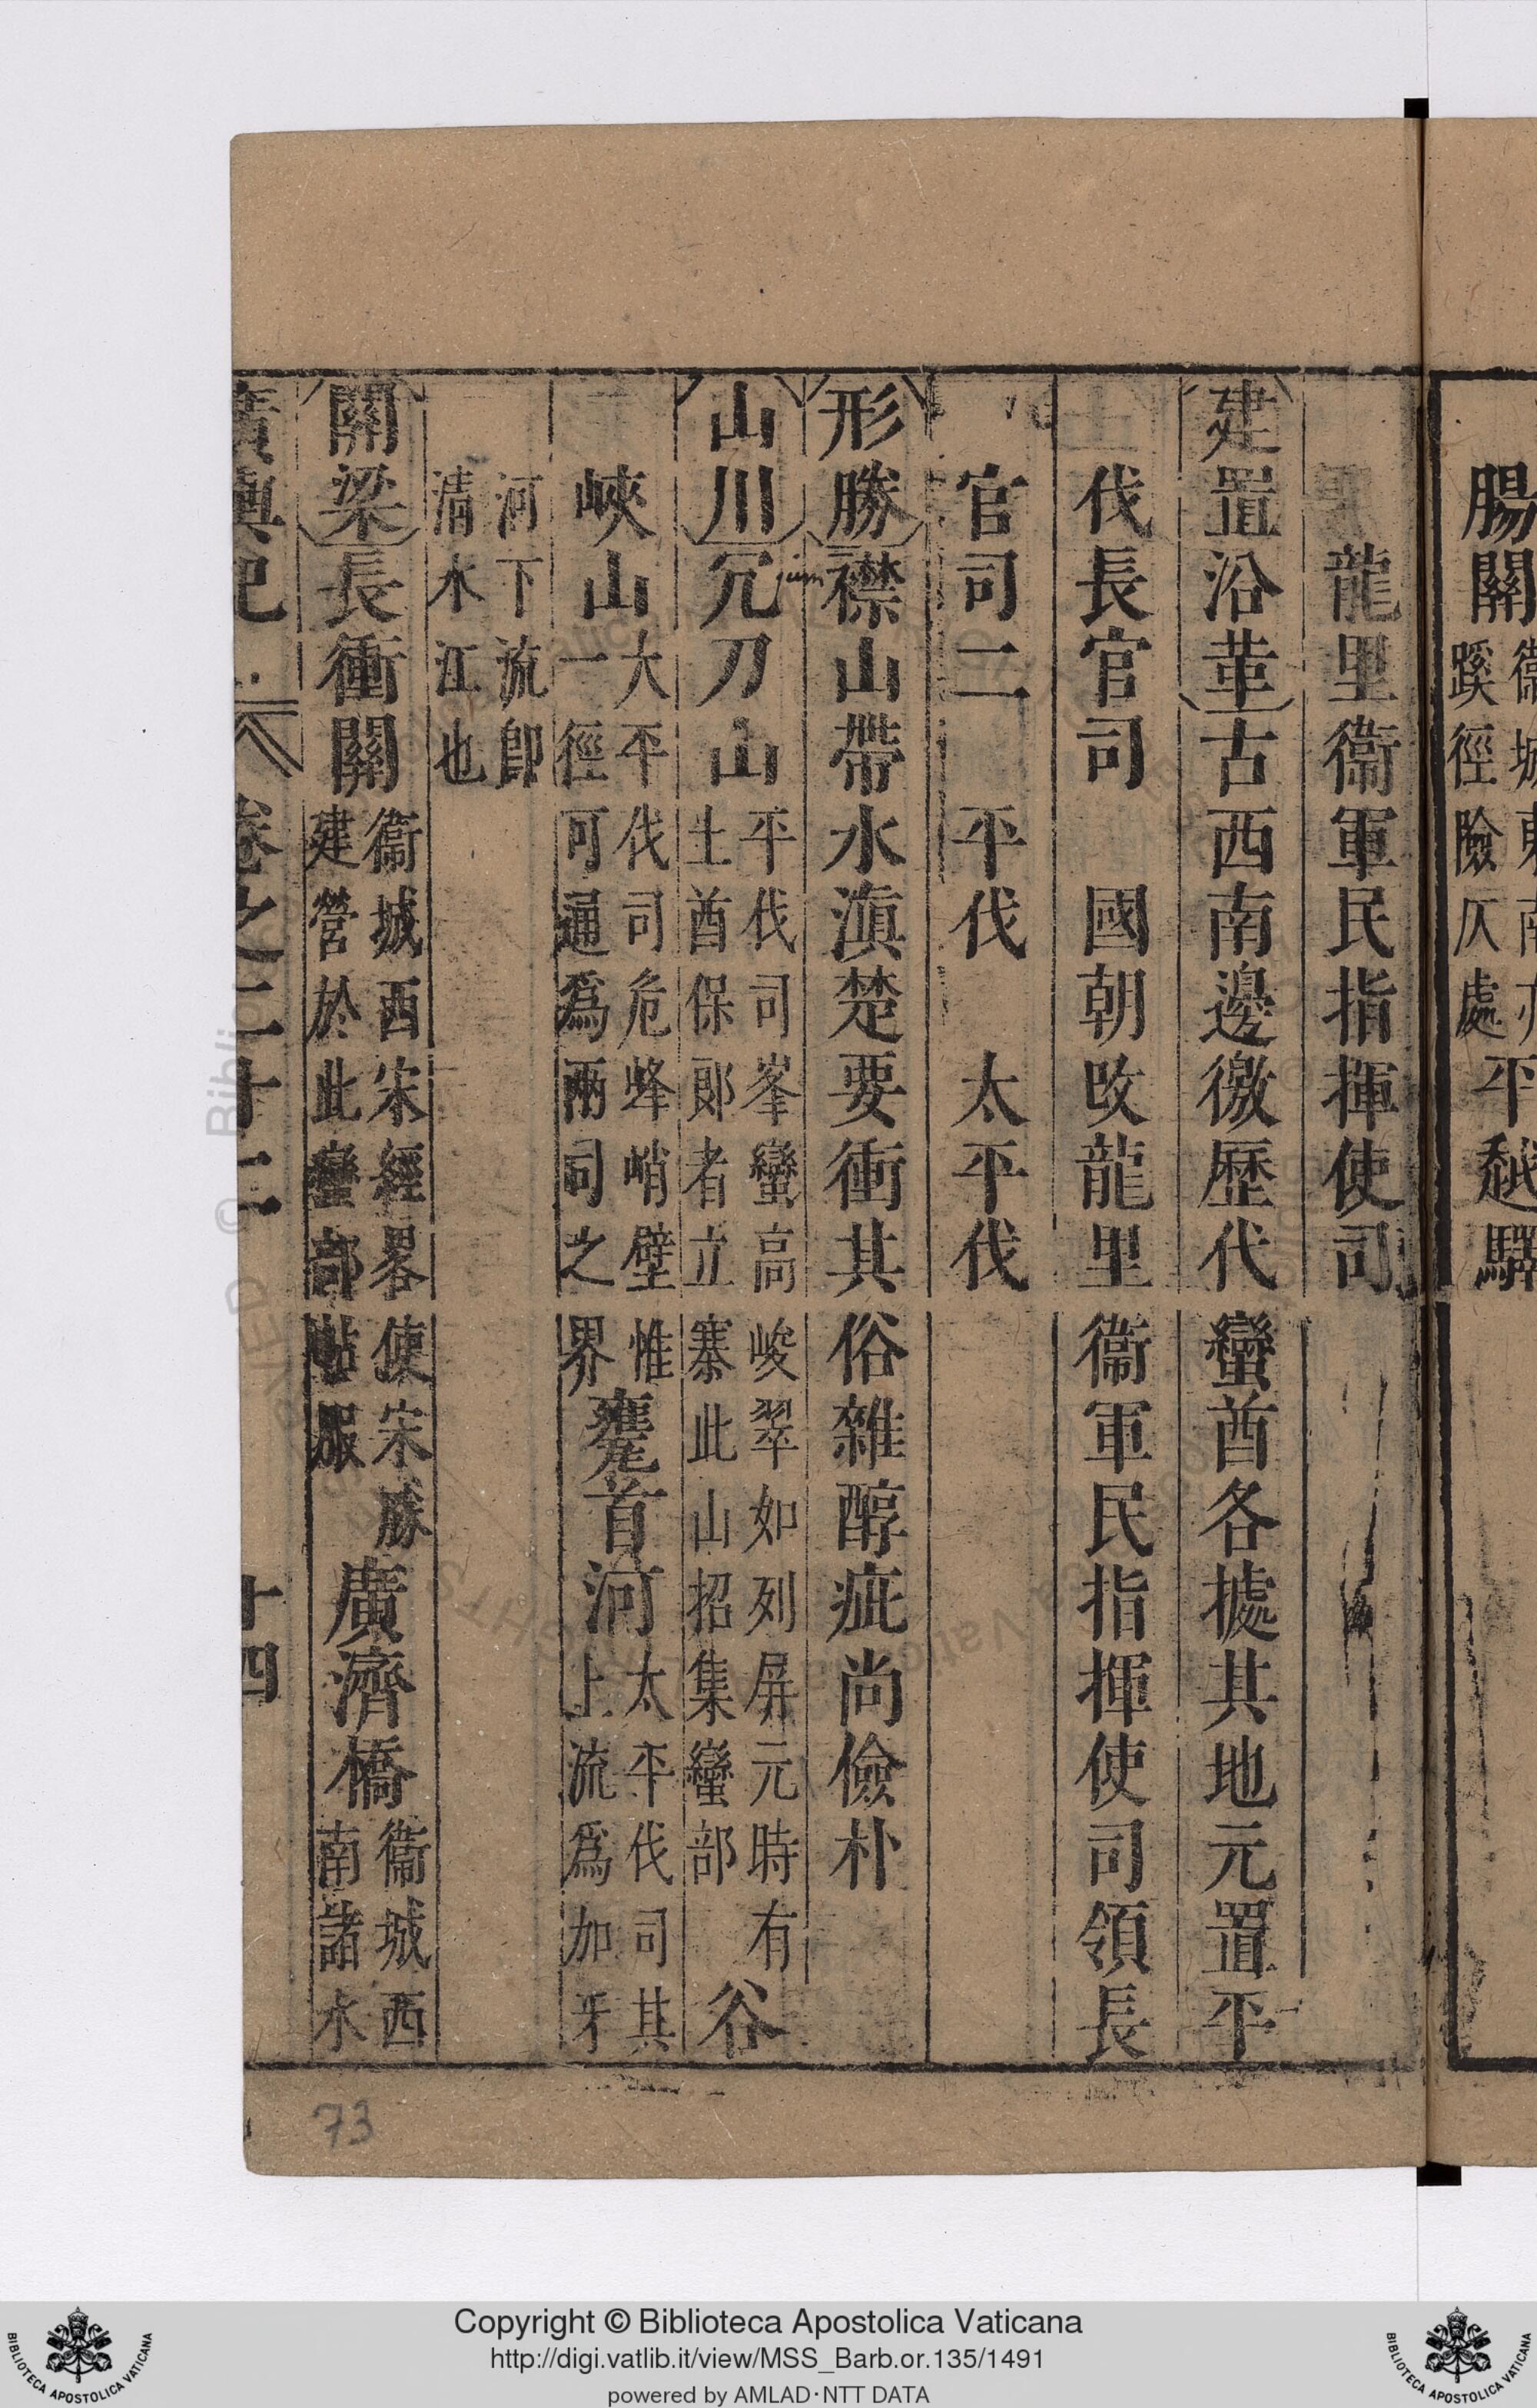 腸關衞城東南亦蹊徑險仄處平越驛
龍里衞軍民指揮使司
建置沿革古西南邊徼歷代蠻酋各據其地元置平
伐長官司 國朝改龍里衞軍民指揮使司領長
官司二 平伐 太平伐
形勝襟山帶水滇楚要衝其俗雜醇疵尚儉朴
jum
山川冗刀山平伐司峯蠻高峻翠如列屏元時有土酋保郎者立寨此山招集蠻部谷
峽山大平伐司危峰峭壁惟一徑可通爲兩司之界甕首河太平伐司其上流爲加牙
河下流卽清水江也
關梁長衝關衞城西宋經畧使宋勝建營於此蠻部帖服廣濟橋衞城西南諸水
廣輿記 卷之二十二 十四
73
Copyright © Biblioteca Apostolica Vaticana
http://digi.vatlib.it/view/MSS_Barb.or.135/1491
powered by AMLAD·NTT DATA
BIBLIOTECA APOSTOLICA VATICANA
BIBLIOTECA APOSTOLICA VATICANA